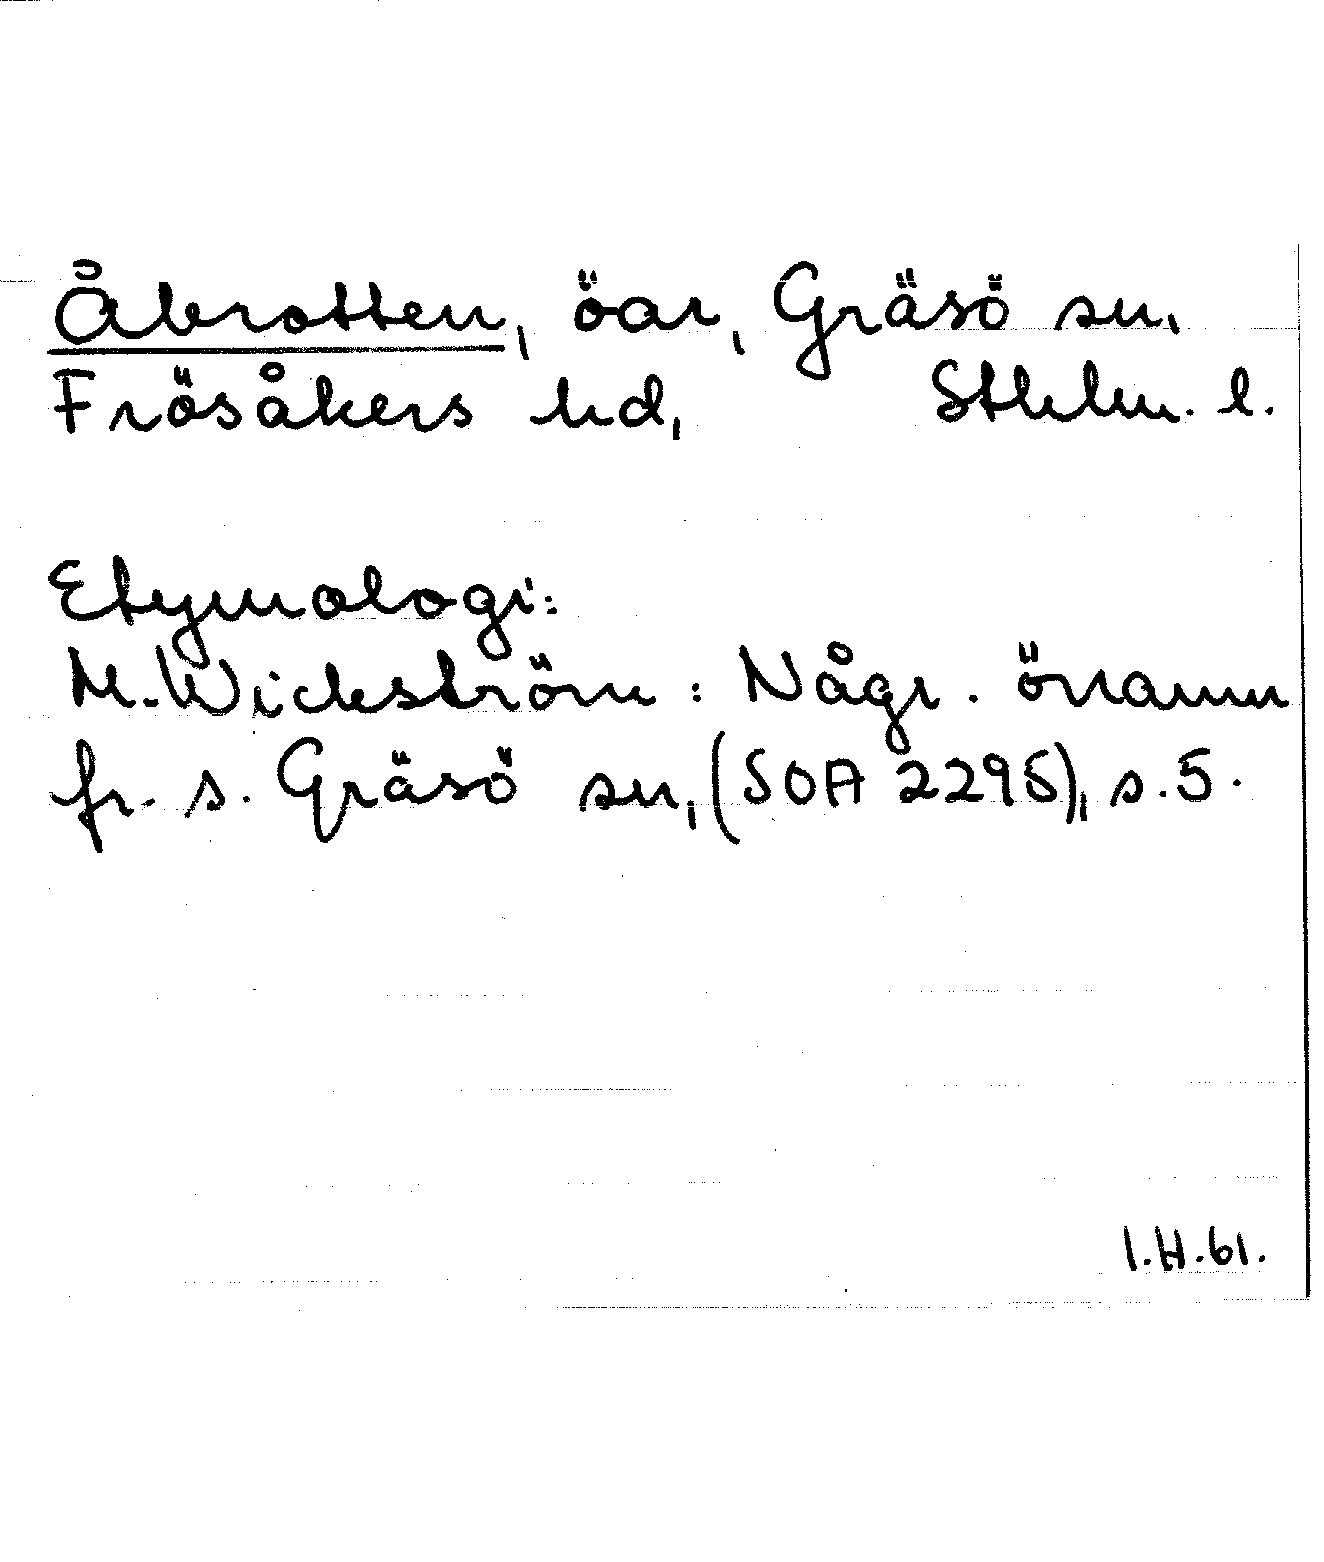 Åbrotten, öar, Gräsö sn,
Frösåkers hd, Sthlm. l.
Etymologi:
M. Wickström: Någr. önamn
fr. s. Gräsö sn, (SOA 2295), s. 5.
I.H.61.